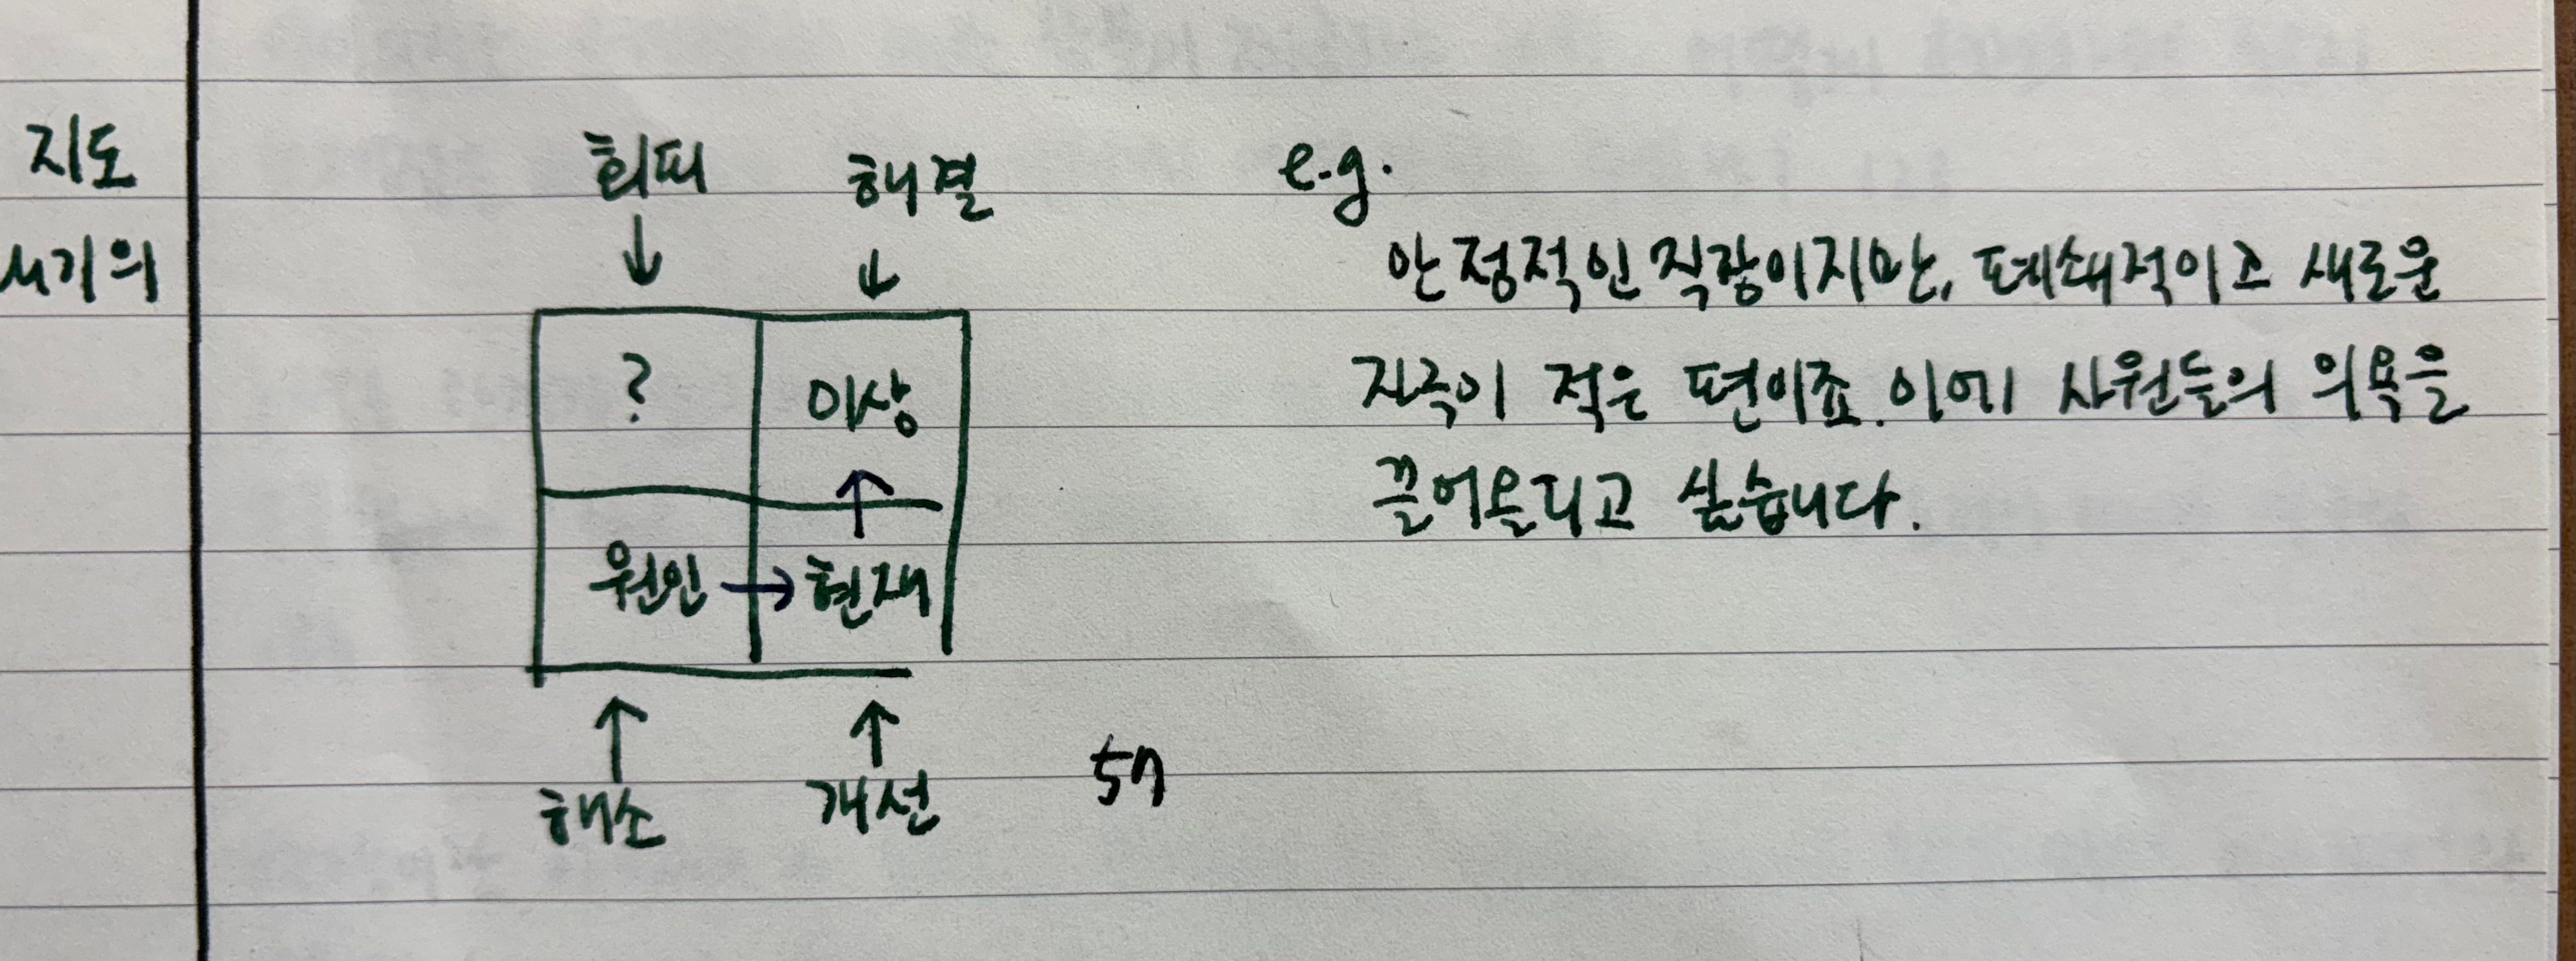 지도
회피 해결
↓ ↓
? 이상
↑
원인 → 현재
↑ ↑
해소 개선
57
e.g.
안정적인 직장이지만, 폐쇄적이고 새로운
자극이 적은 편이죠. 이에 사원들의 의욕을
끌어올리고 싶습니다.